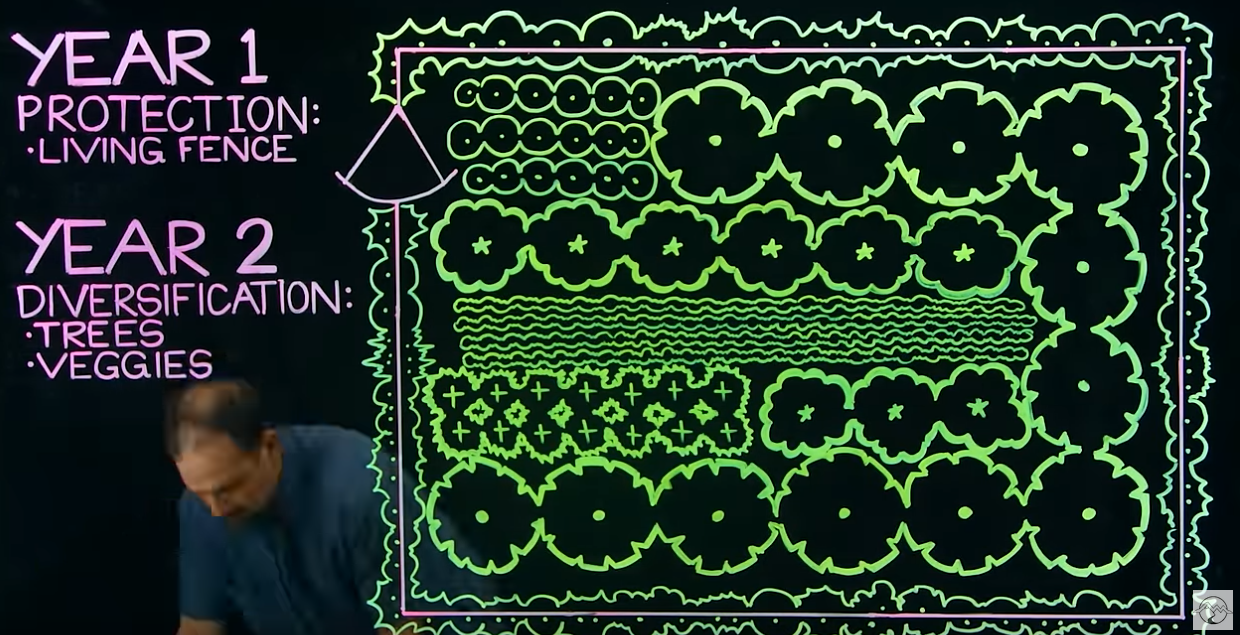 YEAR 1
PROTECTION:
·LIVING FENCE
YEAR 2
DIVERSIFICATION:
·TREES
·VEGGIES